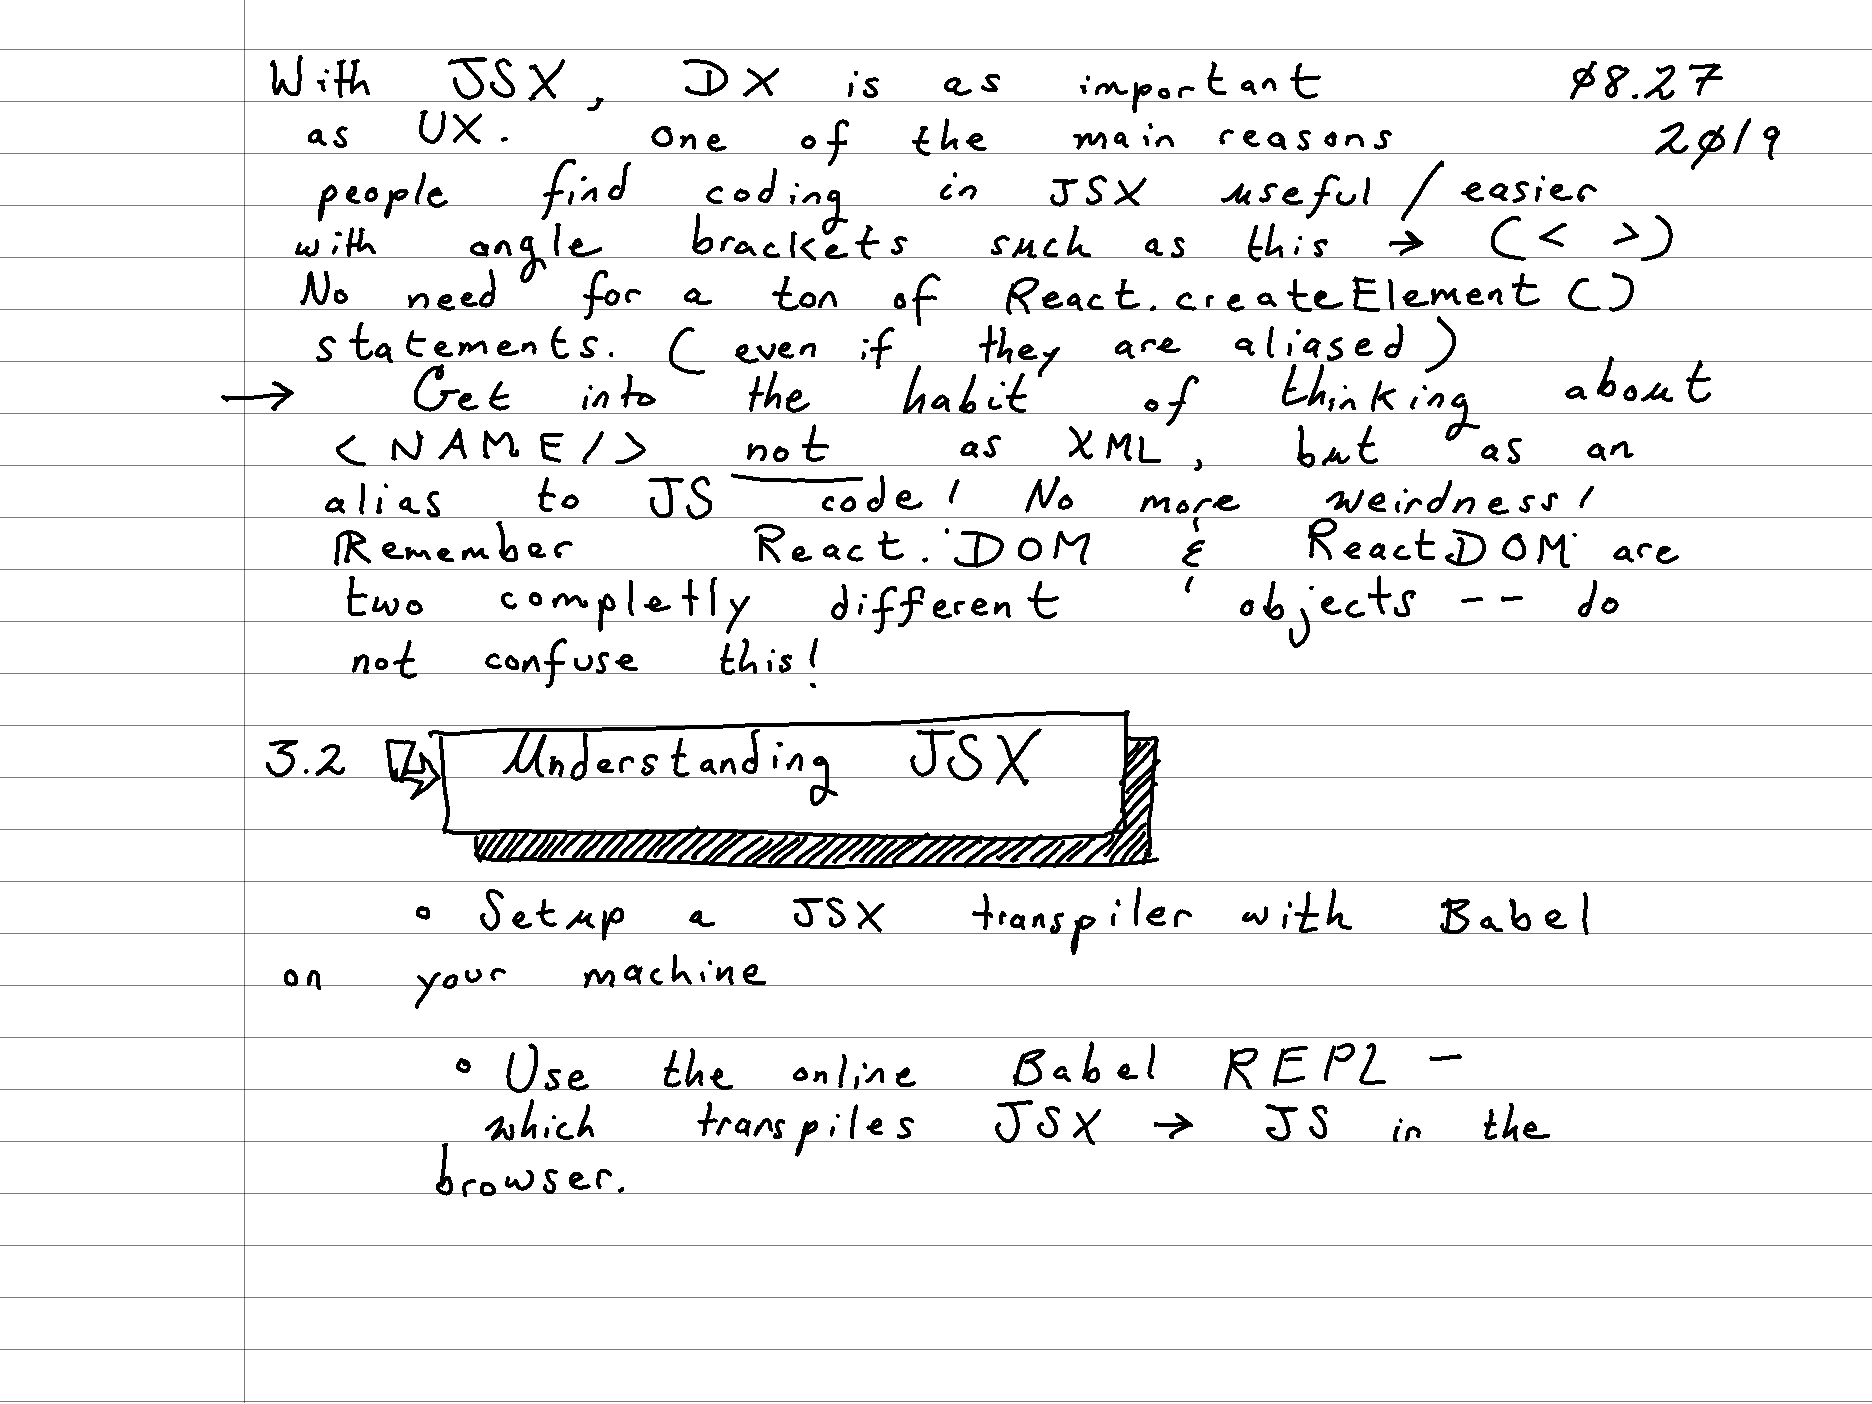 With JSX, DX is as important ø8.27
as UX. One of the main reasons 2ø19
people find coding in JSX useful / easier
with angle brackets such as this → (< >)
No need for a ton of React.createElement()
statements. (even if they are aliased)
→ Get into the habit of thinking about
<NAME/> not as XML, but as an
alias to JS code! No more weirdness!
Remember React.DOM & ReactDOM are
two completly different objects -- do
not confuse this!
3.2 Understanding JSX
• Setup a JSX transpiler with Babel
on your machine
• Use the online Babel REPL -
which transpiles JSX → JS in the
browser.